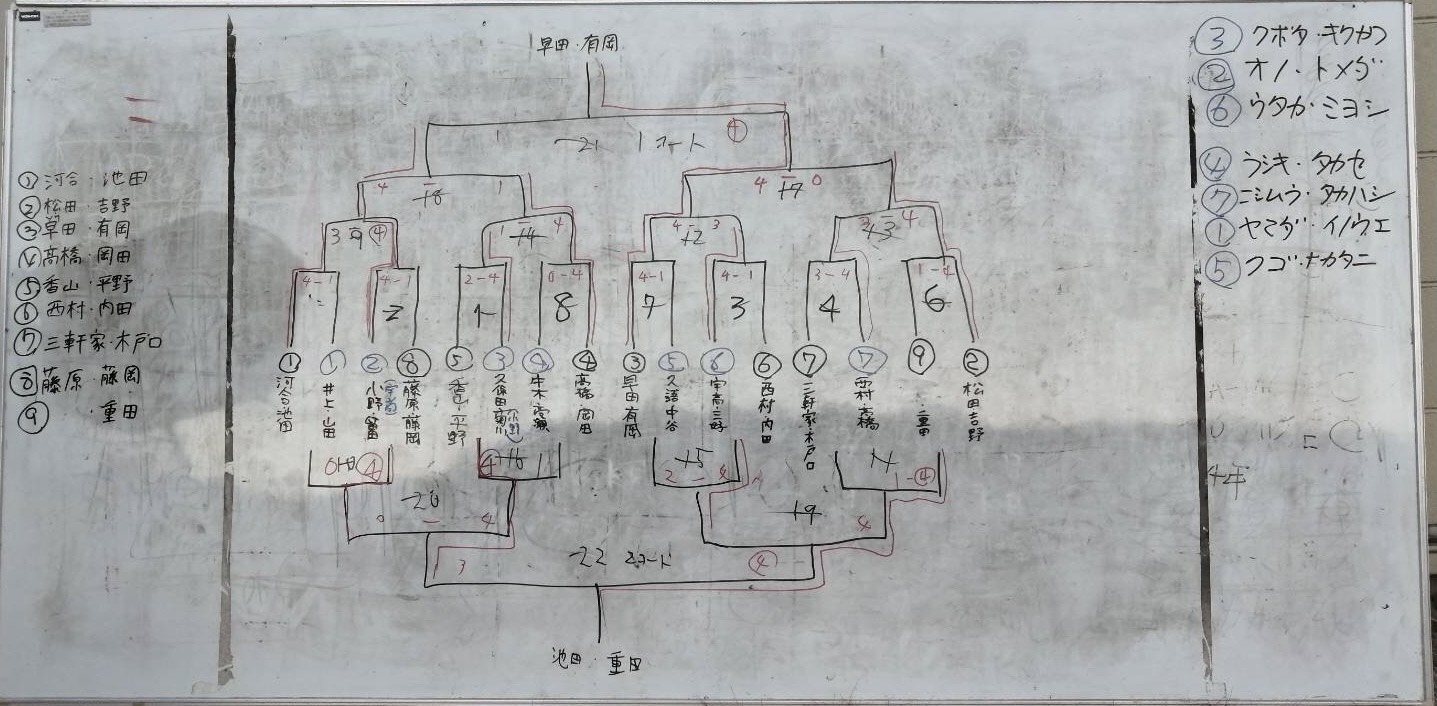 早田・有岡
1 - ④
21 1コート
4 - 1
18
4 - 0
17
3 - ④
9
1 - 4
14
4 - 3
12
3 - 4
13
4-1
4-1
2-4
0-4
4-1
4-1
3-4
1-4
2
1
8
7
3
4
6
① ① ② ⑧ ⑤ ③ ④ ④ ③ ⑤ ⑥ ⑥ ⑦ ⑦ ⑨ ②
河合池田
井上・山田
藤原・藤岡
香山・平野
高橋・岡田
早田・有岡
久語中谷
宇高・三好
西村・内田
三軒家・木戸口
西村・高橋
重田
松田吉野
0 ④
④ 16
15
2 - 4
1-④
20
0 - 4
19
4
3 ④
22 2コート
池田・重田
①河合・池田
②松田・吉野
③早田・有岡
④高橋・岡田
⑤香山・平野
⑥西村・内田
⑦三軒家・木戸口
⑧藤原・藤岡
⑨ ・重田
③クボタ・キクカワ
②オノ・トメダ
⑥ウタカ・ミヨシ
④ウシキ・タカセ
⑦ニシムラ・タカハシ
①ヤマダ・イノウエ
⑤クゴ・ナカタニ